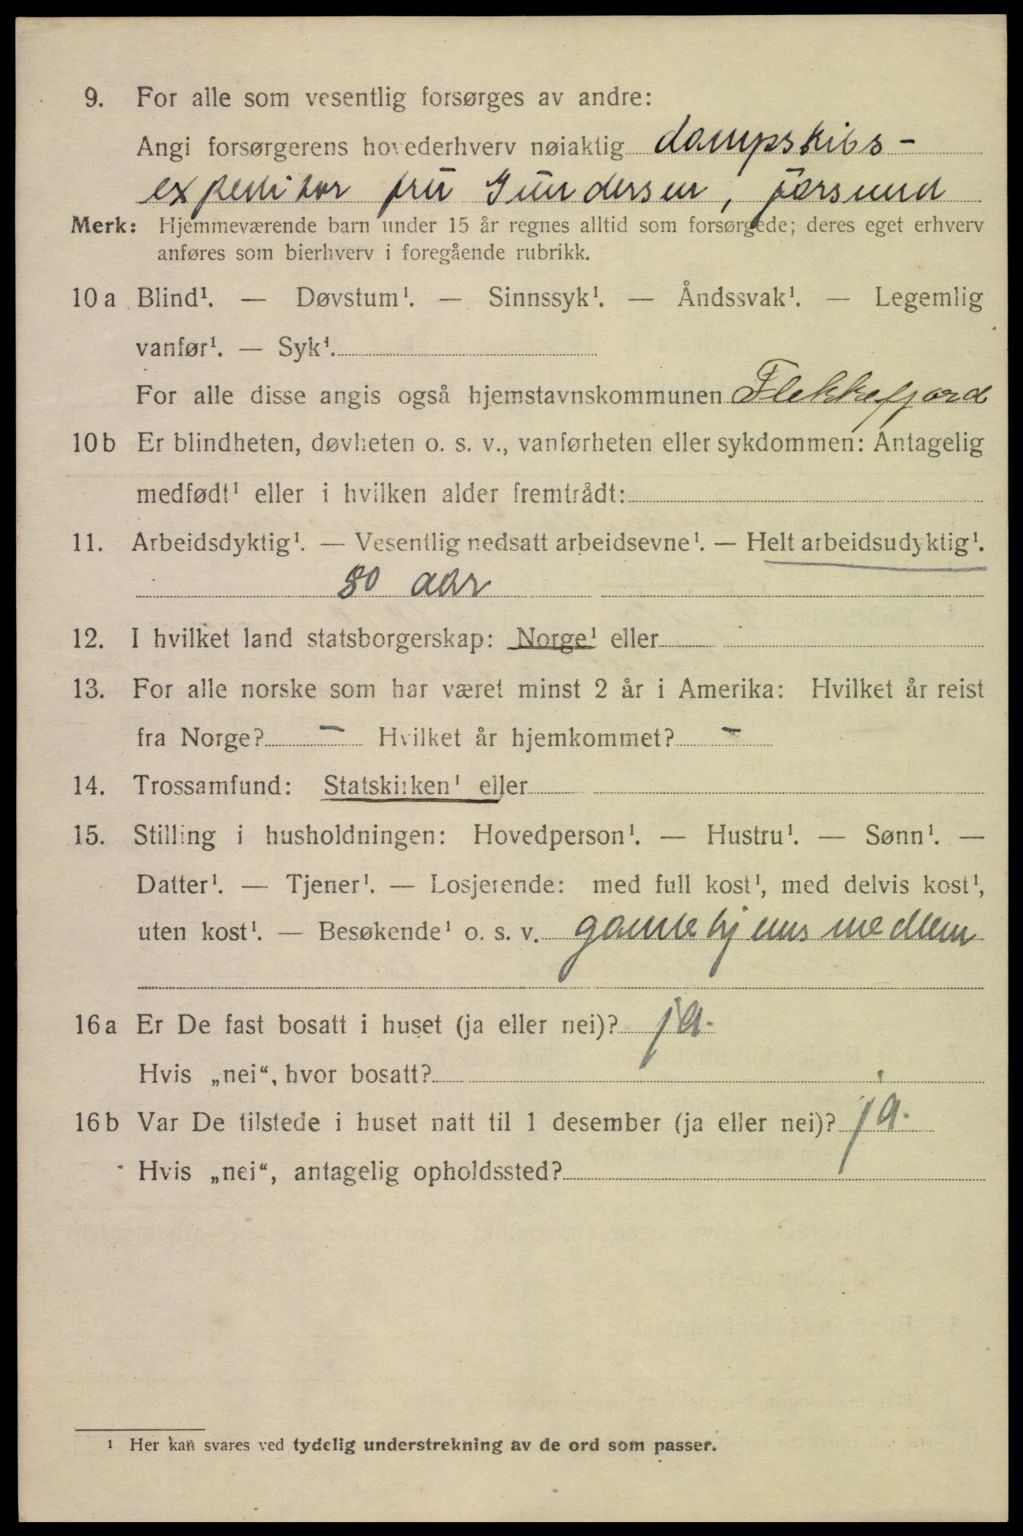 9. For alle som vesentlig forsørges av andre:
Angi forsørgerens hovederhverv nøiaktig dampskibs-
expeditør frú Gúndersen, Jørsund
Merk: Hjemmeværende barn under 15 år regnes alltid som forsørgede; deres eget erhverv
anføres som bierhverv i foregående rubrikk.
10a Blind¹. — Døvstum¹. — Sinnssyk¹. — Åndssvak¹. — Legemlig
vanfør¹. — Syk¹.
For alle disse angis også hjemstavnskommunen Flekkefjord
10b Er blindheten, døvheten o. s. v., vanførheten eller sykdommen: Antagelig
medfødt¹ eller i hvilken alder fremtrådt:
11. Arbeidsdyktig¹. — Vesentlig nedsatt arbeidsevne¹. — Helt arbeidsudyktig¹.
80 aar
12. I hvilket land statsborgerskap: Norge¹ eller
13. For alle norske som har været minst 2 år i Amerika: Hvilket år reist
fra Norge? — Hvilket år hjemkommet? —
14. Trossamfund: Statskirken¹ eller
15. Stilling i husholdningen: Hovedperson¹. — Hustru¹. — Sønn¹. —
Datter¹. — Tjener¹. — Losjerende: med full kost¹, med delvis kost¹,
uten kost¹. — Besøkende¹ o. s. v. gamlehjemsmedlem
16a Er De fast bosatt i huset (ja eller nei)? ja.
Hvis „nei“, hvor bosatt?
16b Var De tilstede i huset natt til 1 desember (ja eller nei)? ja.
Hvis „nei“, antagelig opholdssted?
¹ Her kan svares ved tydelig understrekning av de ord som passer.